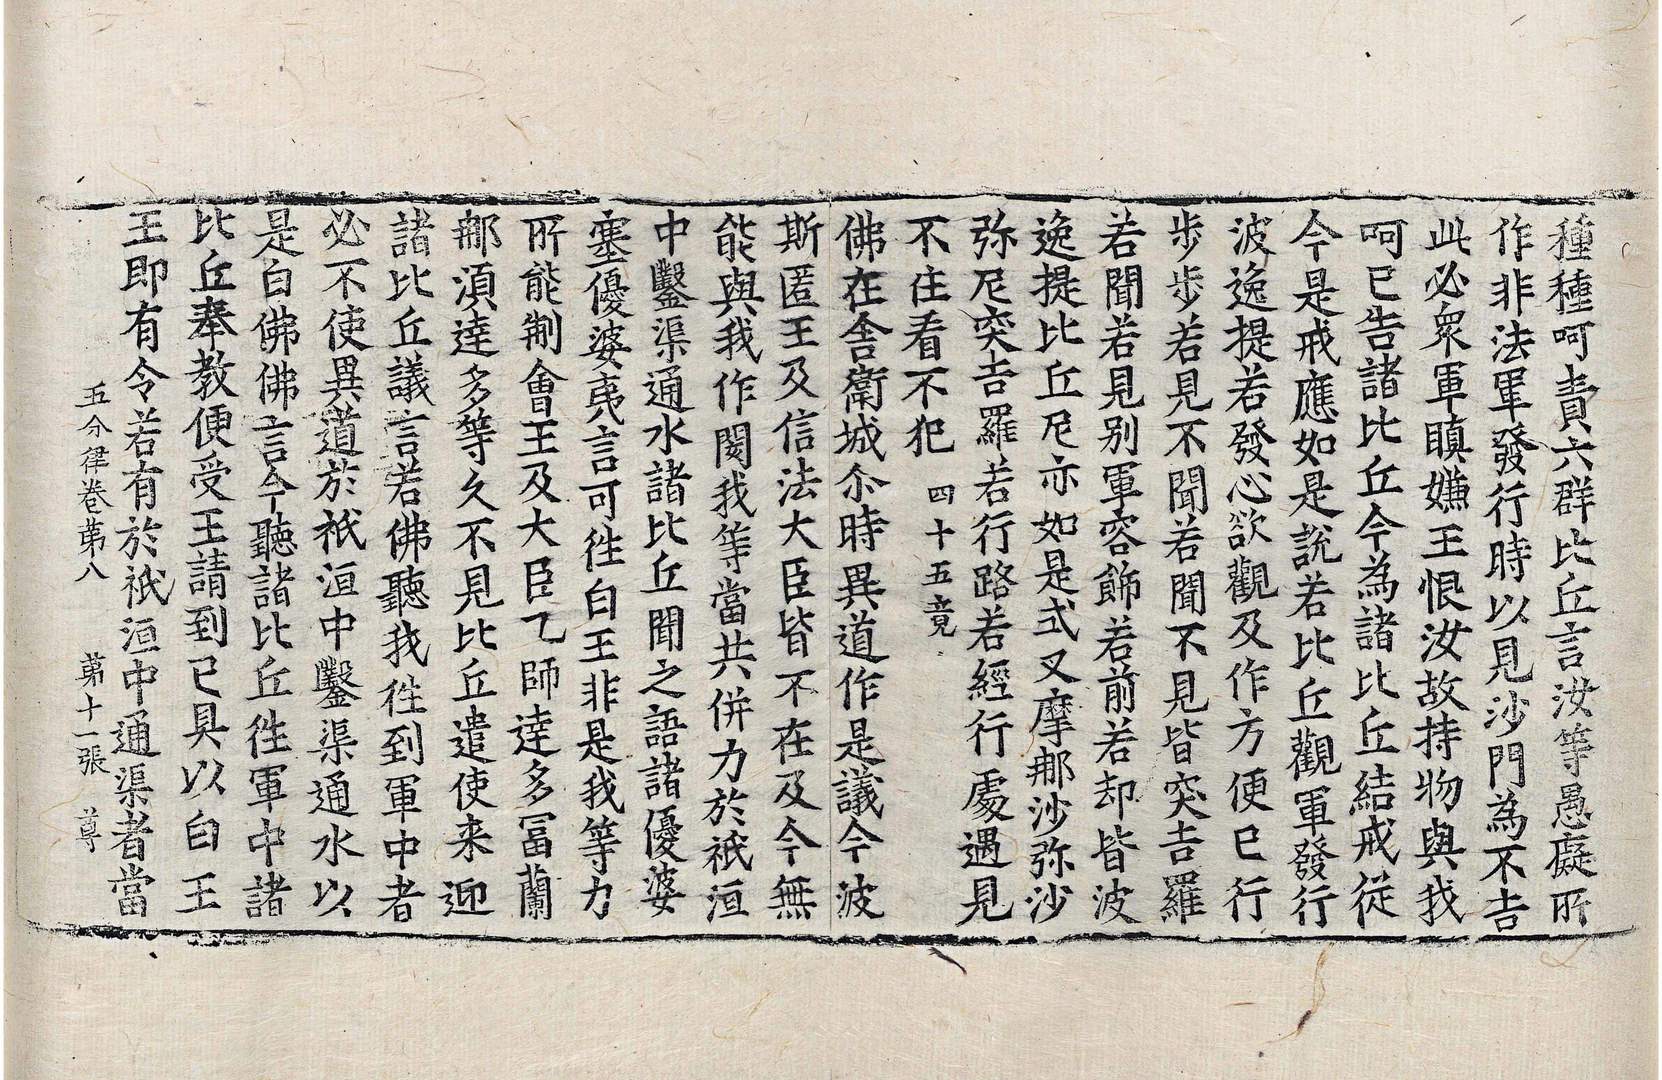 種種呵責六群比丘言汝等愚癡所
作非法軍發行時以見沙門為不吉
此必衆軍瞋嫌王恨汝故持物與我
呵已告諸比丘今為諸比丘結戒從
今是戒應如是說若比丘觀軍發行
波逸提若發心欲觀及作方便已行
步步若見不聞若聞不見皆突吉羅
若聞若見別軍容飾若前若却皆波
逸提比丘尼亦如是式叉摩那沙弥沙
弥尼突吉羅若行路若經行處遇見
不住看不犯 四十五竟
佛在舍衛城尒時異道作是議今波
斯匿王及信法大臣皆不在及今無
能與我作閡我等當共併力於祇洹
中鑿渠通水諸比丘聞之語諸優婆
塞優婆夷言可徃白王非是我等力
所能制會王及大臣乙師達多富蘭
那湏達多等久不見比丘遣使来迎
諸比丘議言若佛聽我徃到軍中者
必不使異道於祇洹中鑿渠通水以
是白佛佛言今聽諸比丘徃軍中諸
比丘奉教便受王請到已具以白王
王即有令若有於祇洹中通渠者當
五分律卷苐八 苐十一張 尊